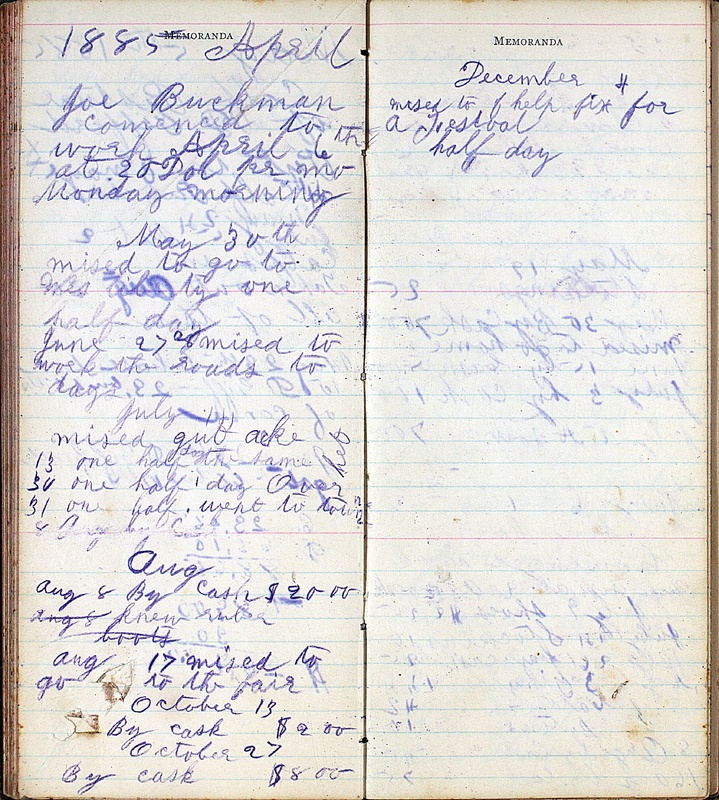 MEMORANDA
1885 April
Joe Buckman
comenced to
work April 6th
at 20 Dol per mo
Monday morning
May 30th
mised to go to
one
half day
June 27 28 mised to
work the roads to
days
July 11
mised gut ake
13 one half the same
30 one half day Over het
31 on half went to town
8 Aug
Aug
Aug 8 By Cash $20 00
Aug 8 knew ruber
boots
Aug 17 mised to
go to the fair
October 13
By cask $2 00
October 27
By cask $8 00
MEMORANDA
December
mised to help fix # for
a Festval
half day